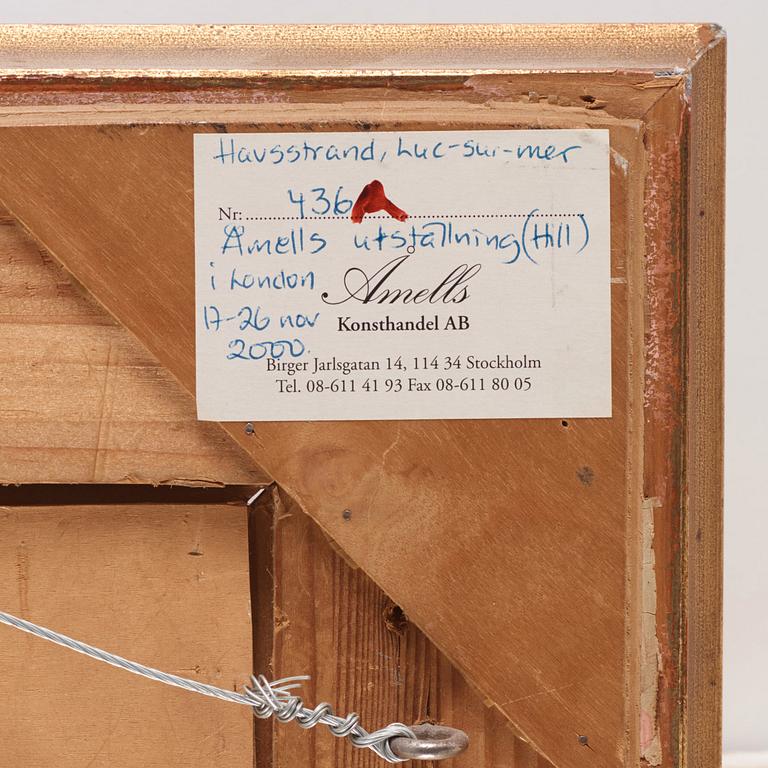 Havsstrand, Luc-sur-mer
Nr: 436 A
Åmells utställning (Hill)
i London
Åmells
17-26 nov
Konsthandel AB
2000.
Birger Jarlsgatan 14, 114 34 Stockholm
Tel. 08-611 41 93 Fax 08-611 80 05